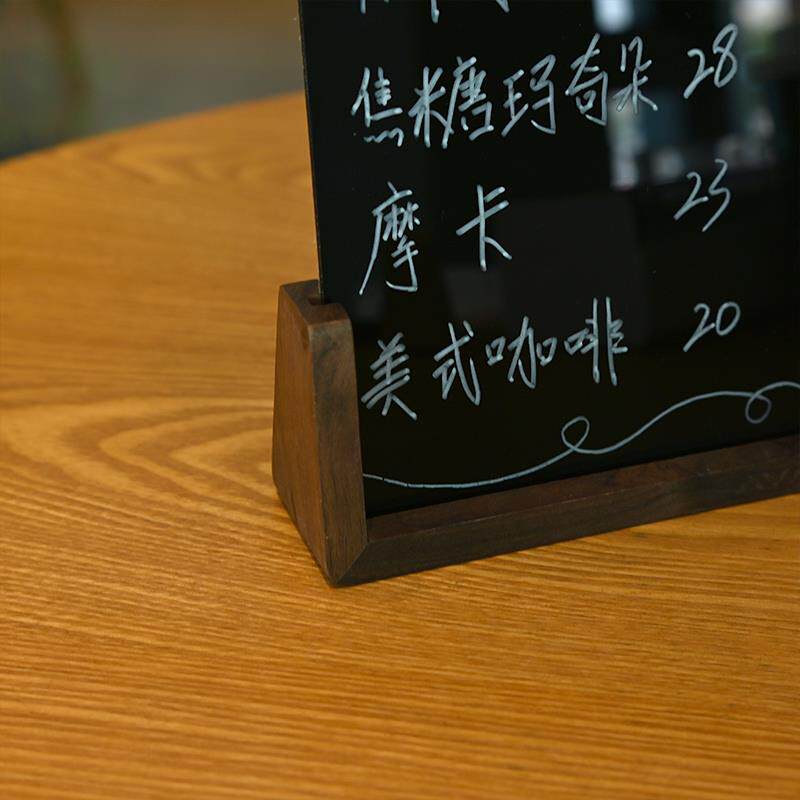 焦糖玛奇朵 28
摩卡 23
美式咖啡 20